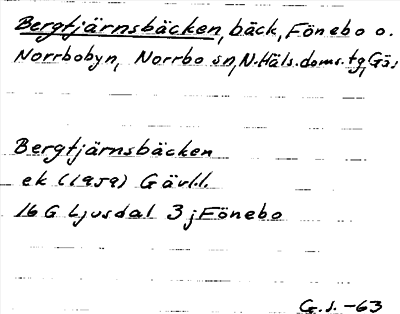 Bergtjärnsbäcken, bäck, Fönebo o.
Norrbobyn, Norrbo sn, N.Häls.doms.tg, Gäs.
Bergtjärnsbäcken
ek (1959) Gävl.l.
16 G Ljusdal 3 j Fönebo
G.S. -63